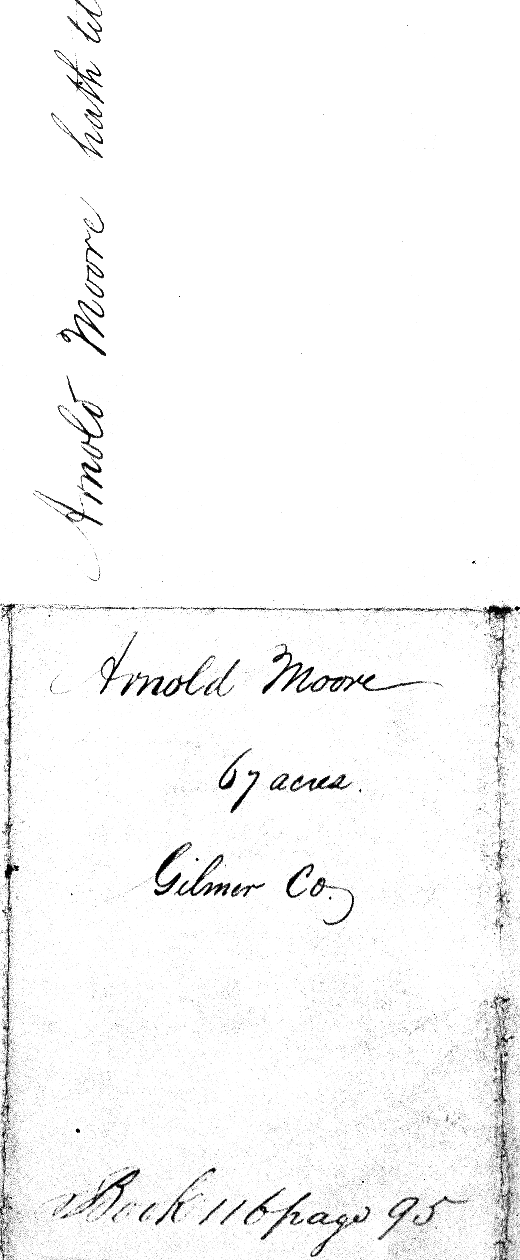 Arnold Moore hath
Arnold Moore
67 acres.
Gilmer Co.
Book 116 page 95